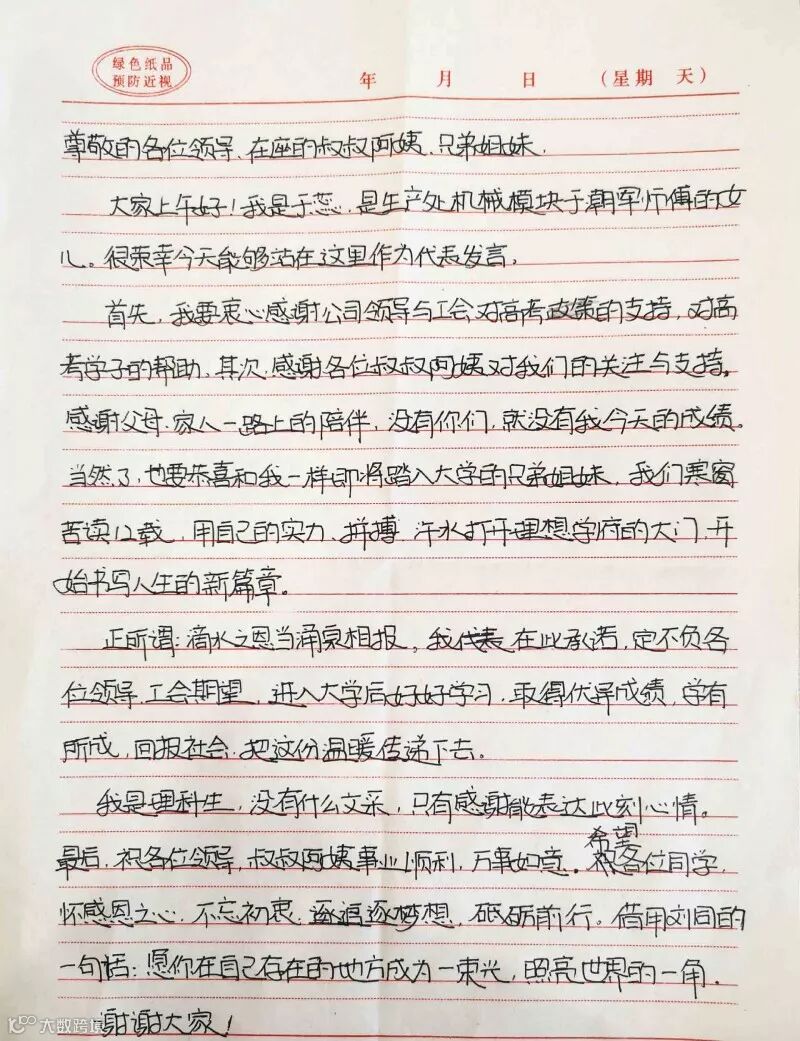 绿色纸品
预防近视
年 月 日 (星期 天)
尊敬的各位领导、在座的叔叔阿姨、兄弟姐妹.
大家上午好!我是于蕊,是生产处机械模块于潮军师傅的女
儿。很荣幸今天能够站在这里作为代表发言.
首先,我要衷心感谢公司领导与工会对高考政策的支持,对高
考学子的帮助、其次,感谢各位叔叔阿姨对我们的关注与支持。
感谢父母、家人一路上的陪伴,没有你们,就没有我今天的成绩。
当然了,也要恭喜和我一样即将踏入大学的兄弟姐妹,我们寒窗
苦读12载,用自己的实力、拼搏、汗水打开理想学府的大门,开
始书写人生的新篇章。
正所谓:滴水之恩当涌泉相报,我代表在此承若,定不负各
位领导、工会期望,进入大学后好好学习,取得优异成绩,学有
所成,回报社会,把这份温暖传递下去。
我是理科生,没有什么文采,只有感谢能表达此刻心情。
希望
最后,祝各位领导,叔叔阿姨事业顺利,万事如意。祝各位同学,
怀感恩之心、不忘初衷、逐追逐梦想,砥砺前行。借用刘同的
一句话:愿你在自己存在的地方成为一束光,照亮世界的一角.
谢谢大家!
大数跨境